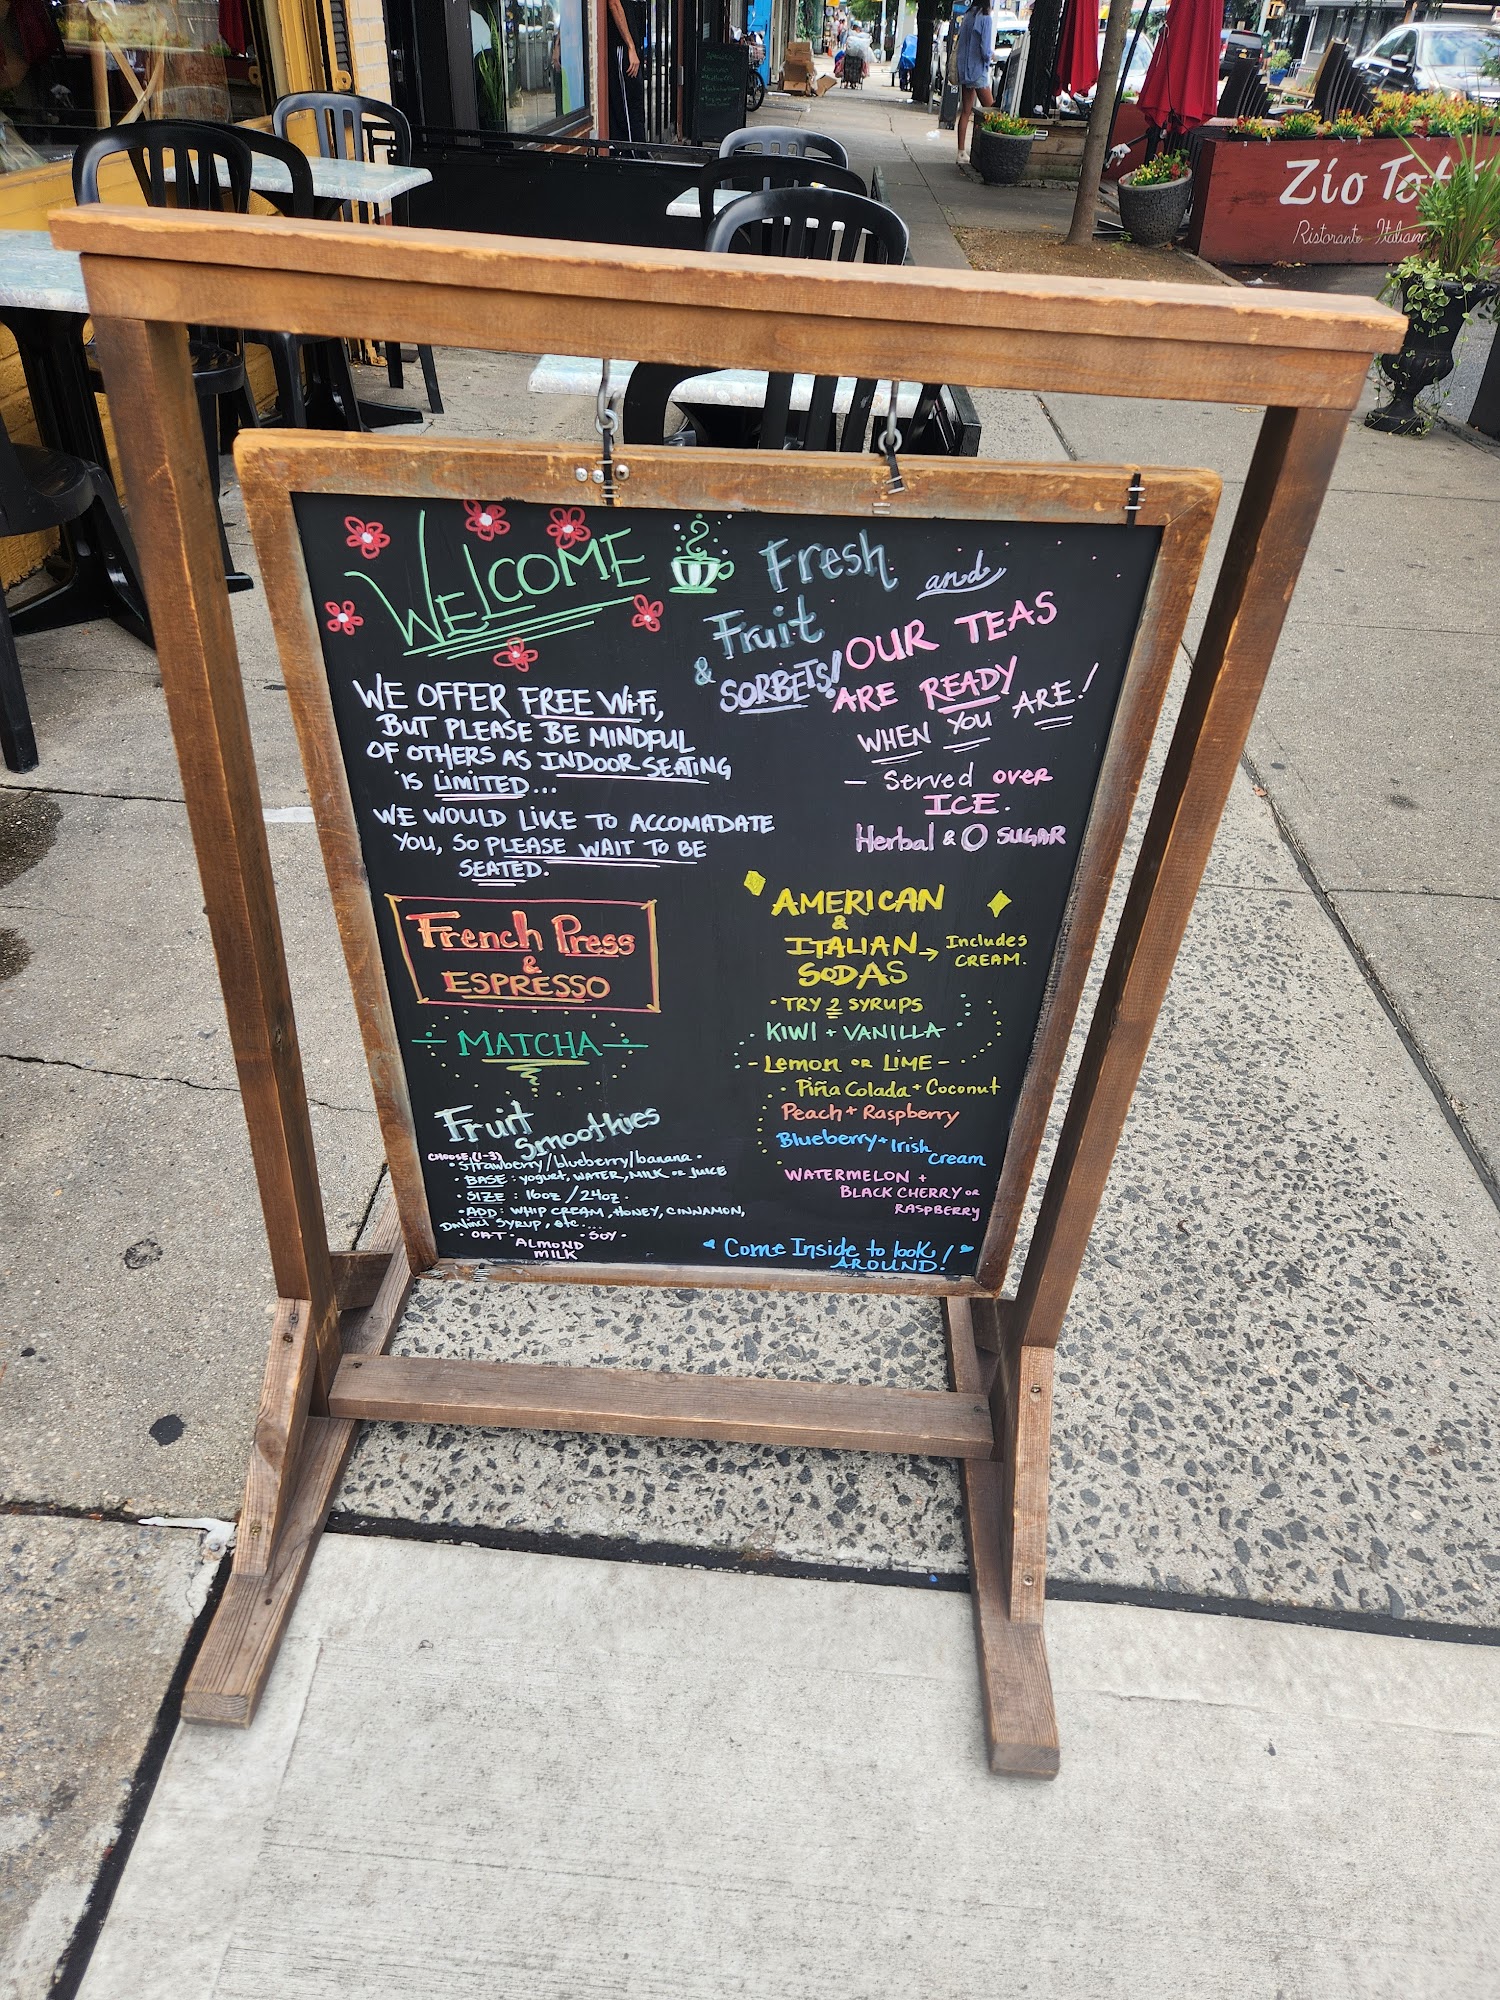 Zio Tot
Ristorante Italiano
WELCOME
WE OFFER FREE WiFi,
BUT PLEASE BE MINDFUL
OF OTHERS AS INDOOR SEATING
IS LIMITED...
WE WOULD LIKE TO ACCOMADATE
YOU, SO PLEASE WAIT TO BE
SEATED.
French Press
&
ESPRESSO
MATCHA
Fruit
Smoothies
CHOOSE (1-3)
• Strawberry/blueberry/banana •
• BASE: yogurt, WATER, MILK or JUICE
• SIZE : 16oz / 24oz.
• ADD: WHIP CREAM, HONEY, CINNAMON,
DaVinci SYRUP, etc....
• OAT • ALMOND MILK • SOY •
Fresh
Fruit
& SORBETS!
and
OUR TEAS
ARE READY
WHEN YOU ARE!
— Served over
ICE.
Herbal & O SUGAR
AMERICAN
&
ITALIAN → Includes
SODAS CREAM.
• TRY 2 SYRUPS
KIWI + VANILLA
- Lemon or LIME -
Piña Colada + Coconut
Peach + Raspberry
Blueberry + Irish
Cream
WATERMELON +
BLACK CHERRY or
RASPBERRY
Come Inside to look
AROUND!